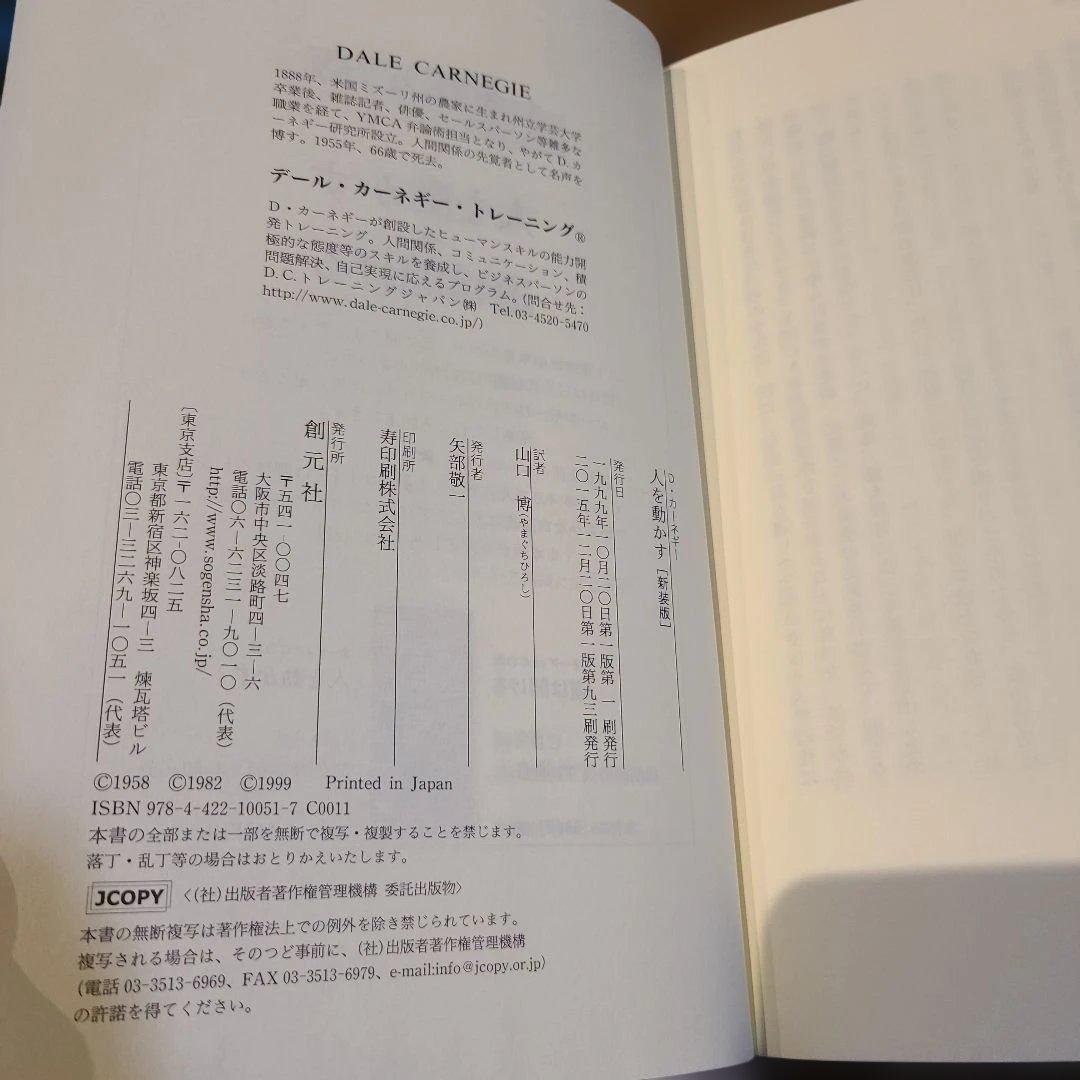 DALE CARNEGIE
1888年、米国ミズーリ州の農家に生まれ州立学芸大学
卒業後、雑誌記者、俳優、セールスパーソン等雑多な
職業を経て、YMCA 弁論術担当となり、やがてD. カ
ーネギー研究所設立。人間関係の先覚者として名声を
博す。1955年、66歳で死去。
デール・カーネギー・トレーニング®
D・カーネギーが創設したヒューマンスキルの能力開
発トレーニング。人間関係、コミュニケーション、積
極的な態度等のスキルを養成し、ビジネスパーソンの
問題解決、自己実現に応えるプログラム。(問合せ先：
D. C. トレーニングジャパン㈱ Tel.03-4520-5470
http://www.dale-carnegie.co.jp/)
D・カーネギー
人を動かす［新装版］
発行日
一九九九年一〇月二〇日第一版第一刷発行
二〇一五年一二月二〇日第一版第九三刷発行
訳者
山口 博(やまぐちひろし)
発行者
矢部敬一
印刷所
寿印刷株式会社
発行所
創元社
〒五四一−〇〇四七
大阪市中央区淡路町四−三−六
電話〇六−六二三一−九〇一〇（代表）
http://www.sogensha.co.jp/
〔東京支店〕〒一六二−〇八二五
東京都新宿区神楽坂四−三 煉瓦塔ビル
電話〇三−三二六九−一〇五一（代表）
©1958 ©1982 ©1999 Printed in Japan
ISBN 978-4-422-10051-7 C0011
本書の全部または一部を無断で複写・複製することを禁じます。
落丁・乱丁等の場合はおとりかえいたします。
JCOPY 〈(社)出版者著作権管理機構 委託出版物〉
本書の無断複写は著作権法上での例外を除き禁じられています。
複写される場合は、そのつど事前に、(社)出版者著作権管理機構
(電話 03-3513-6969、FAX 03-3513-6979、e-mail:info@jcopy.or.jp)
の許諾を得てください。